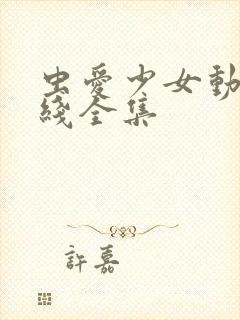 虫爱少女動
綫全集
許嘉